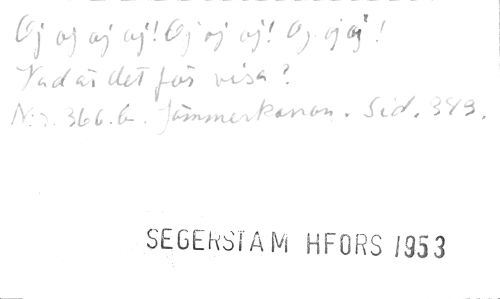 Oj oj oj oj! Oj oj oj! Oj oj oj!
Vad är det för visa?
N:o. 366.b. Jämmerkanon. Sid. 343.
SEGERSTAM HFORS 1953